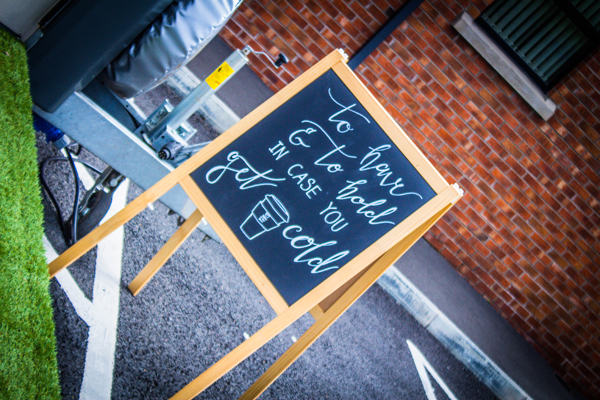 to have
& to hold
IN CASE YOU
get cold